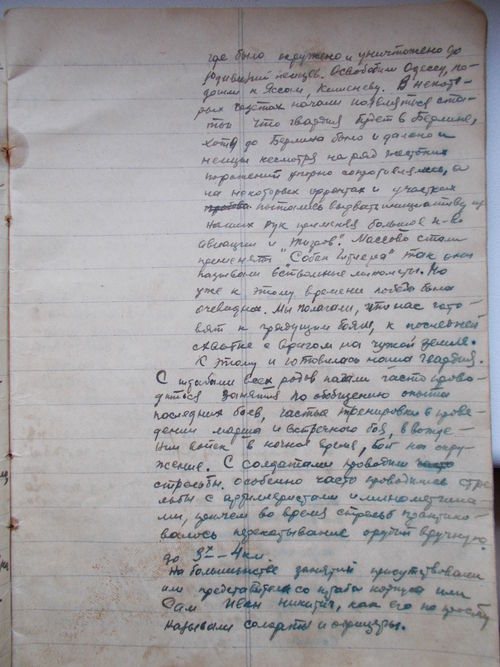 где было окружено и уничтожено до
дивизий немцев. Освободили Одессу, по-
дошли к Яссам, Кишеневу. В некото-
рых газетах начали появляться ста-
тьи что гвардия будет в Берлине,
хотя до Берлина было и далеко и
немцы несмотря на ряд жестоких
поражений упорно сопротивлялись, а
на некоторых фронтах и участках
пытались вырвать инициативу из
наших рук применяя большое к-во
авиации и тигров. Массово стали
применять "Собак Гитлера" так они
называли 6ствольные минометы. Но
уже к этому времени победа была
очевидна. Мы полагали, что нас гото-
вят к грядущим боям, к последней
схватке с врагом на чужой земле.
К этому и готовилась наша гвардия.
С штабами всех родов начали часто прово-
диться занятия по обобщению опыта
последних боев, частые тренировки в прове-
дении марша и встречного боя, в вожде-
нии войск в ночное время, бой на окру-
жение. С солдатами проводили часто
стрельбы. особенно часто проводились стре
льбы с артиллеристами и минометчика-
ми, причем во время стрельб практико-
валось перекатывание орудий вручную
до 3х-4 км.
На большинстве занятий присутствовали
или представители со штаба корпуса или
Сам Иван Никитич, как его по просту
называли солдаты и офицеры.